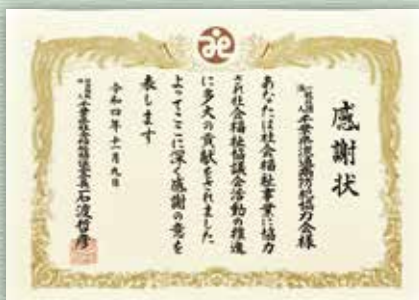 感謝状
一般社団法人 千葉県浄化槽防犯協力会様
あなたは社会福祉事業に協力
され社会福祉協議会活動の推進
に多大の貢献をされました
よってここに深く感謝の意を
表します
令和四年十一月九日
千葉県社会福祉協議会長 石渡哲彦